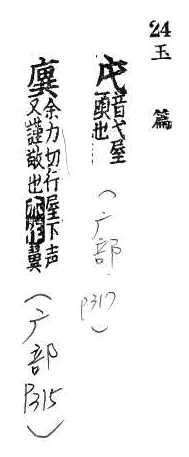 24 玉篇
音弋屋
頭也
(广部 P317)
廙
余力切行屋下声
又謹敬也亦作翼
(广部 P315)